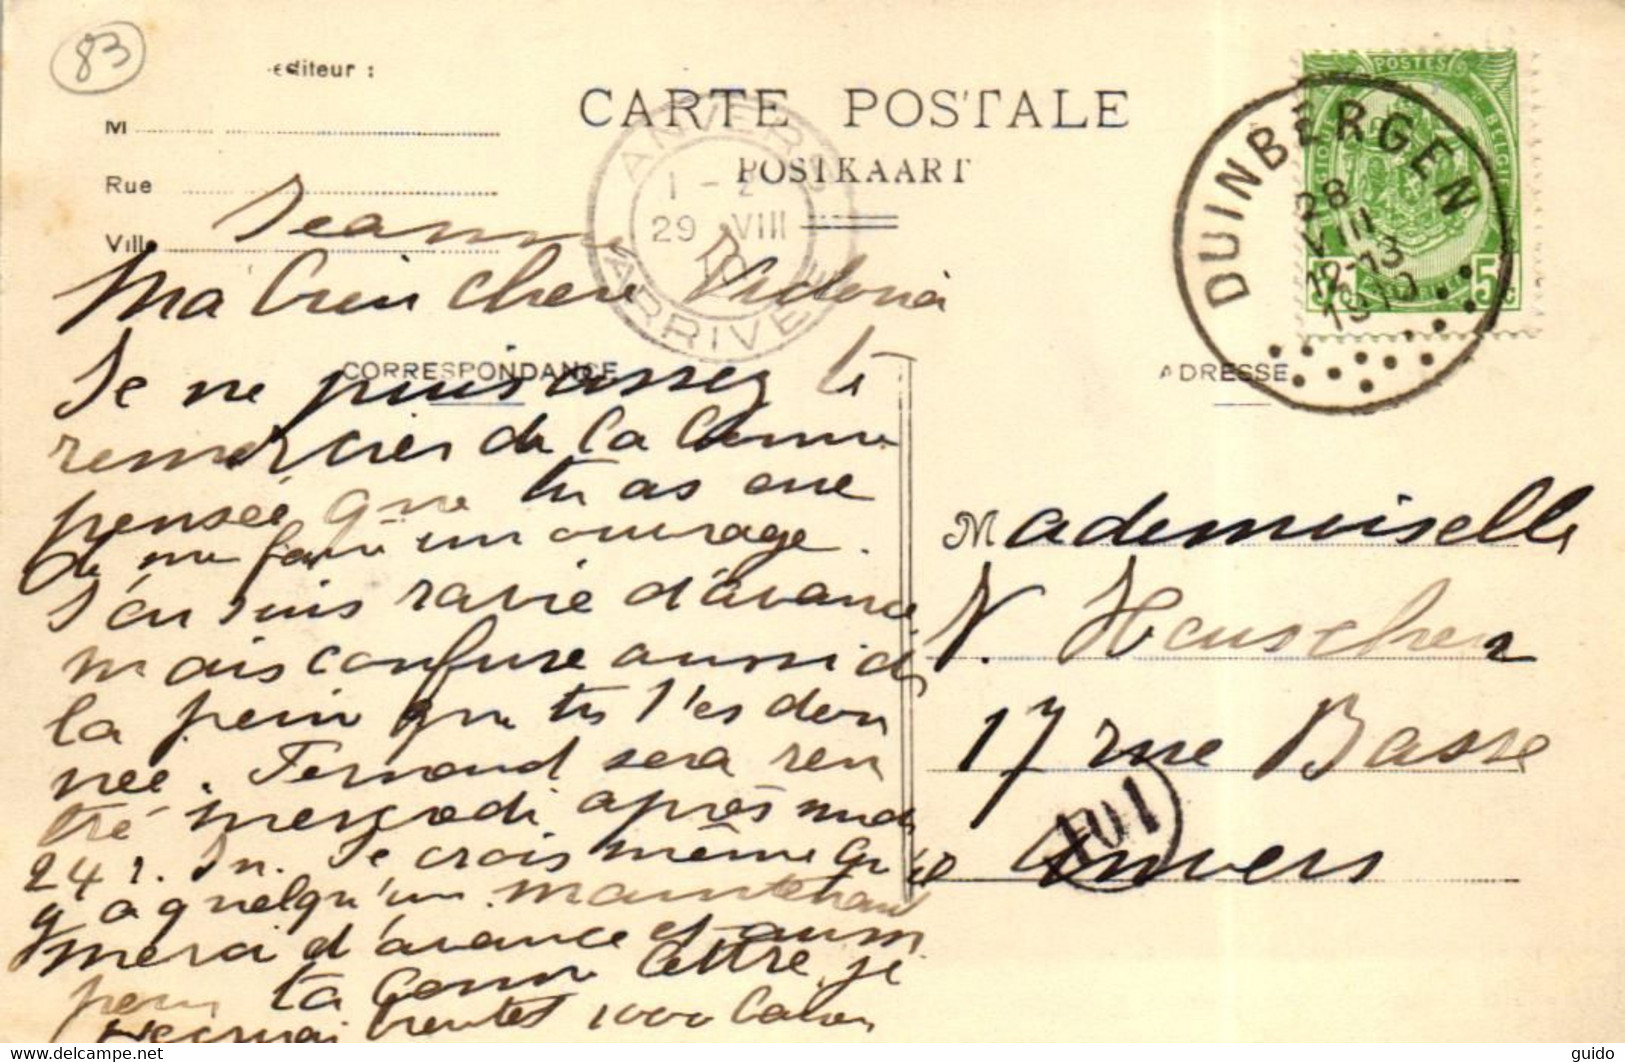 83
-editeur :
M
Rue
Ville
CARTE POSTALE
POSTKAART
ANVERS
1 - 2
29 VIII
10
ARRIVEE
DUINBERGEN
28
VIII
12-13
1910
POSTES
BELGIE
5
CORRESPONDANCE
ADRESSE
Jeanne
Ma bien chère Victoria
Je ne puis assez te
remercier de la bonne
pensée que tu as eue
de me faire un ouvrage.
J'en suis ravie d'avance
mais confuse aussi de
la peine que tu t'es don
née. Fernand sera ren
tré mercredi après midi
24 r. Je crois même qu'il
y a quelqu'un maintenant
merci d'avance et aussi
pour ta bonne lettre, je
bientôt 1000
Mademoiselle
V. Heuschen
17 rue Basse
Anvers
101
delcampe.net
guido